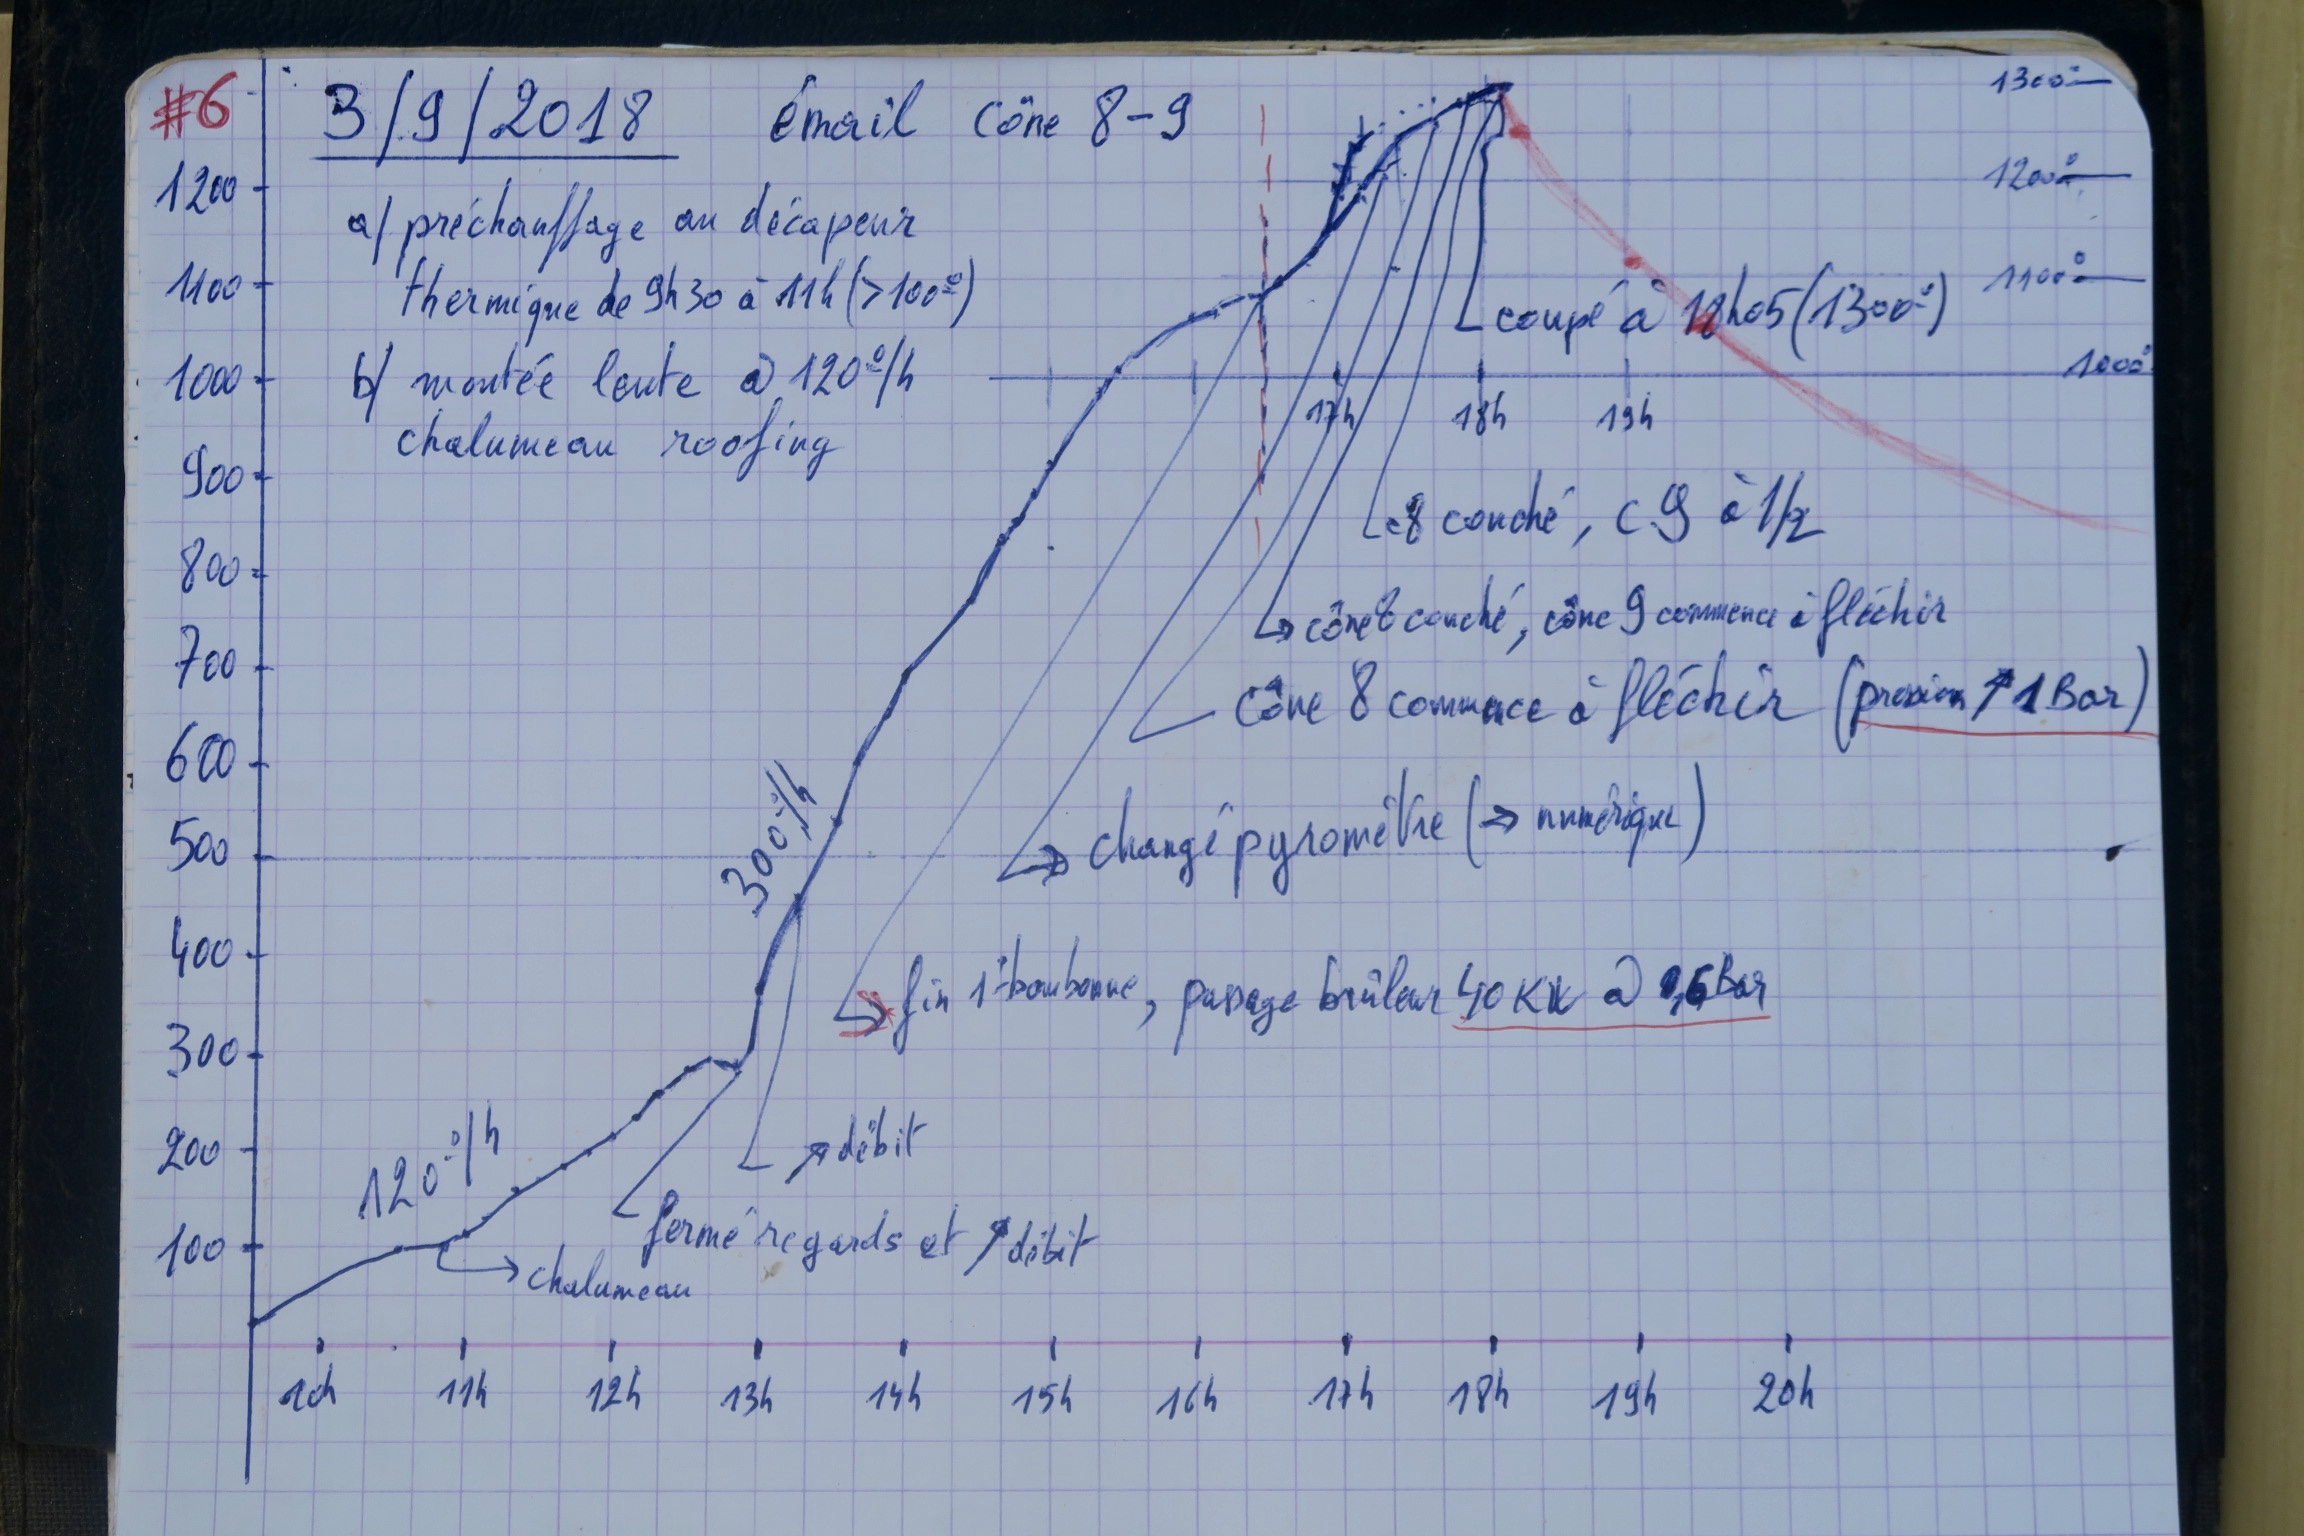 #6 3/9/2018 émail cône 8-9
a/ préchauffage au décapeur
thermique de 9h30 à 11h (>100°)
b/ montée lente @ 120°/h
chalumeau roofing
1300°
1200°
1100°
1000°
1200
1100
1000
900
800
700
600
500
400
300
200
100
17h 18h 19h
coupé à 18h05 (1300°)
c8 couché, c9 à 1/2
cône 8 couché, cône 9 commence à fléchir
cône 8 commence à fléchir (pression ↗ 1 Bar)
→ changé pyromètre (→ numérique)
→ fin 1° bonbonne, passage brûleur 40 KW @ 0,6 Bar
300°/h
↗ débit
fermé regards et ↗ débit
120°/h
→ chalumeau
10h 11h 12h 13h 14h 15h 16h 17h 18h 19h 20h